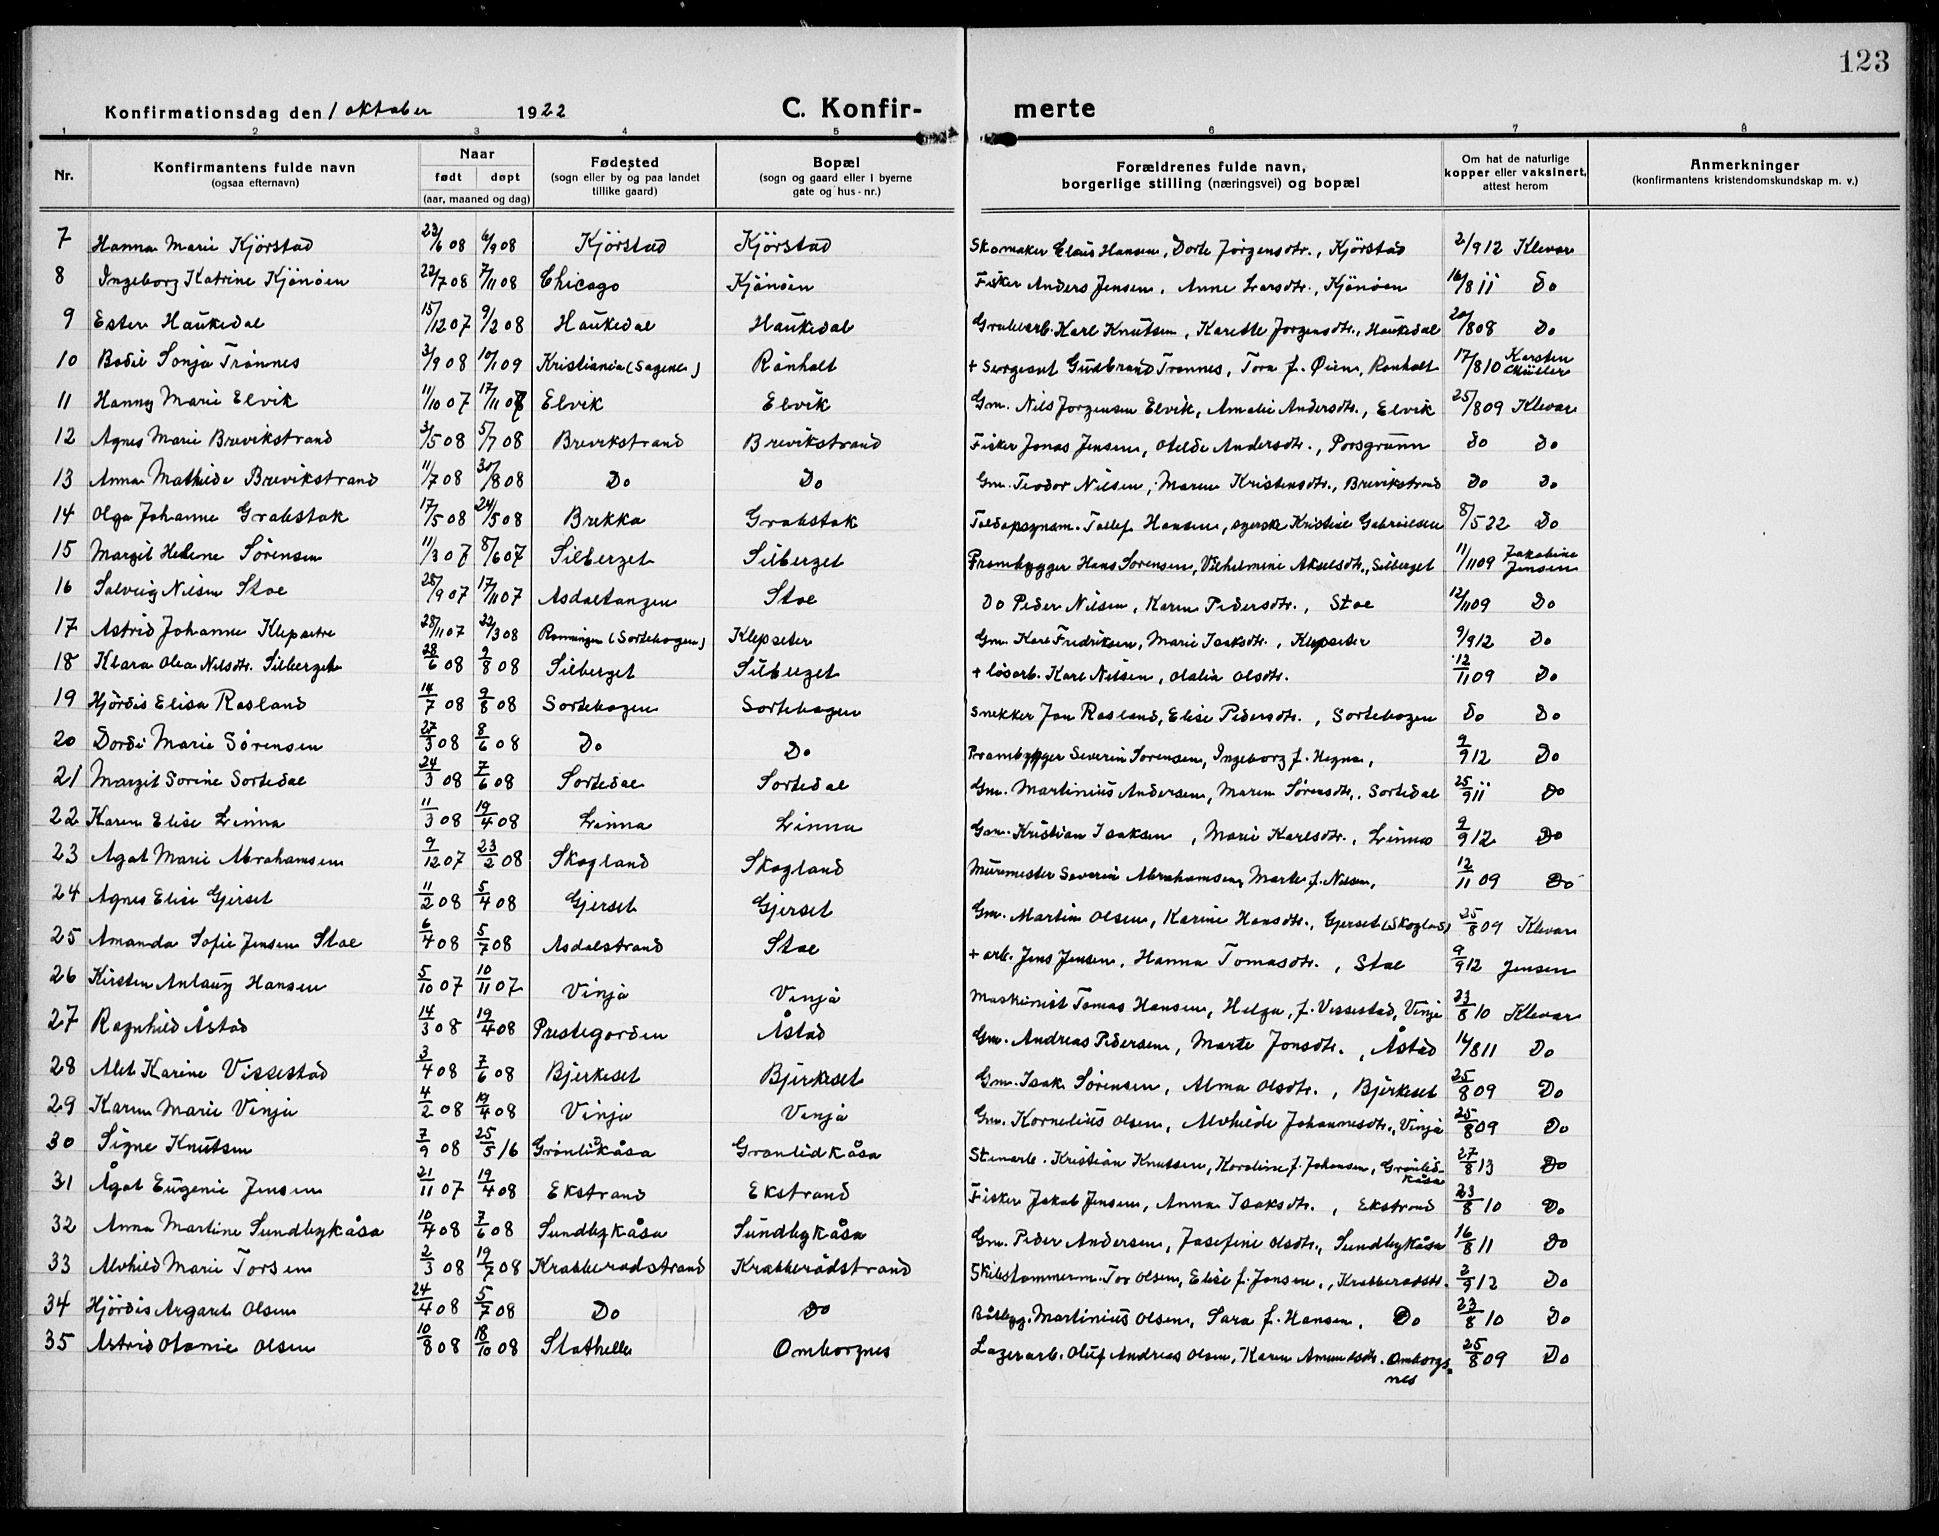 123
Konfirmationsdag den 1 oktober 1922 C. Konfir- merte
1 2 3 4 5 6 7 8
Nr. Konfirmantens fulde navn (ogsaa efternavn) Naar født døpt (aar, maaned og dag) Fødested (sogn eller by og paa landet tillike gaard) Bopæl (sogn og gaard eller i byerne gate og hus-nr.) Forældrenes fulde navn, borgerlige stilling (næringsvei) og bopæl Om hat de naturlige kopper eller vaksinert, attest herom Anmerkninger (konfirmantens kristendomskundskap m. v.)
7 Hanna Marie Kjörstad 23/6 08 6/9 08 Kjörstad Kjörstad Skomaker Claus Hansen, Dorte Jörgensdtr., Kjörstad 2/9 12 Klevar
8 Ingeborg Katrine Kjönöen 22/7 08 7/11 08 Chicago Kjönöen Fisker Anders Jensen, Anne Larsdtr., Kjönöen 16/8 11 Do
9 Ester Haukedal 15/12 07 9/2 08 Haukedal Haukedal Grubearb. Karl Knutsen, Karette Jorgensdtr., Haukedal 20/8 08 Do
10 Bodil Sonja Trönnes 3/9 08 10/1 09 Kristiania (Sagene) Rönholt + Sergeant Gudbrand Tronnes, Tora f. Öien, Ronholt 17/8 10 Karsten Müller
11 Hanny Marie Elvik 11/10 07 17/11 07 Elvik Elvik Gm. Nils Jorgensen Elvik, Amalie Andersdtr., Elvik 25/8 09 Klevar
12 Agnes Marie Brevikstrand 3/5 08 5/7 08 Brevikstrand Brevikstrand Fisker Jonas Jensen, Otelde Andersdtr., Porsgrunn do Do
13 Anna Mathilde Brevikstrand 11/7 08 30/8 08 Do Do Gm. Teodor Nilsen, Maren Kristensdtr., Brevikstrand Do Do
14 Olga Johanne Grabstok 17/5 08 24/5 08 Brekka Grabstok Toldopsynsm. Tollef Hansen, Kristine Gabrielsen 8/5 22 Do
15 Margit Helene Sörensen 11/3 07 8/6 07 Silberget Silberget Prambygger Hans Sorensen, Vilhelmine Akselsdtr., Silberget 11/11 09 Jakobine Jensen
16 Solveig Nilsen Stoe 25/9 07 17/11 07 Asdaltangen Stoe Do Peder Nilsen, Karen Pedersdtr., Stoe 12/11 09 Do
17 Astrid Johanne Klepsetre 28/11 07 22/3 08 Ronningen (Sortebogen) Klepseter Gm. Karl Fredriksen, Marie Isaksdtr., Klepseter 9/9 12 Do
18 Klara Olea Nilsdtr. Silberget 28/6 08 9/8 08 Silberget Silberget + lösarb. Karl Nilsen, Olalia Olsdtr. 12/11 09 Do
19 Hjördis Elisa Rosland 14/7 08 9/8 08 Sortebogen Sortebogen Snekker Jon Rosland, Elise Pedersdtr., Sortebogen Do Do
20 Dordi Marie Sörensen 27/3 08 8/6 08 Do Do Prambygger Severin Sorensen, Ingeborg f. Hegna, 9/9 12 Do
21 Margit Sorine Sortedal 24/3 08 7/6 08 Sortedal Sortedal Gm. Martinius Andersen, Maren Sörensdtr., Sortedal 25/9 11 Do
22 Karen Elise Linna 11/3 08 19/4 08 Linna Linna Gm. Kristian Isaksen, Marie Karlsdtr., Linna 9/9 12 Do
23 Agat Marie Abrahamsen 9/12 07 23/2 08 Skogland Skogland Murmester Severin Abrahamsen, Marte f. Nilsen, 12/11 09 Do
24 Agnes Elise Gjerset 11/2 08 5/4 08 Gjerset Gjerset Gm. Martin Olsen, Karine Hansdtr., Gjerset (Skogland) 25/8 09 Klevar
25 Amanda Sofie Jensen Stoe 6/4 08 5/7 08 Asdalstrand Stoe + arb. Jens Jensen, Hanna Tomasdtr., Stoe 9/9 12 Jensen
26 Kirsten Anlaug Hansen 5/10 07 10/11 07 Vinja Vinja Maskinist Tomas Hansen, Helga, f. Vissestad, Vinje 23/8 10 Klevar
27 Ragnhild Åstad 14/3 08 19/4 08 Prestegorden Åstad Gm. Andreas Pedersen, Marte Jonsdtr., Åstad 16/8 11 Do
28 Alet Karine Vissestad 3/4 08 7/6 08 Bjerkeset Bjerkeset Gm. Isak Sörensen, Alma Olsdtr., Bjerkeset 25/8 09 Do
29 Karen Marie Vinja 4/2 08 19/4 08 Vinja Vinja Gm. Kornelius Olsen, Alvhilde Johannesdtr., Vinja 25/8 09 Do
30 Signe Knutsen 7/9 08 25/5 16 Grönlidkåsa Gronlidkåsa Stenarb. Kristian Knutsen, Karoline f. Johansen, Grönlidkåsa 27/8 13 Do
31 Ågat Eugenie Jensen 21/11 07 19/4 08 Ekstrand Ekstrand Fisker Jakob Jensen, Anna Isaksdtr., Ekstrand 23/8 10 Do
32 Anna Martine Sundbykåsa 10/4 08 7/6 08 Sundbykåsa Sundbykåsa Gm. Peder Andersen, Josefine Olsdtr., Sundbykåsa 16/8 11 Do
33 Alvhild Marie Torsen 2/3 08 19/7 08 Krabberodstrand Krabberödstrand Skibstommerm. Tor Olsen, Elise f. Jonsen, Krabberodstr. 2/9 12 Do
34 Hjördis Argard Olsen 24/4 08 5/7 08 Do Do Båtbyg. Martinius Olsen, Sara f. Hansen, Do 23/8 10 Do
35 Astrid Otonie Olsen 10/8 08 18/10 08 Stathelle Omborgnes Lagerarb. Oluf Andreas Olsen, Karen Amundsdtr. Omborgsnes 25/8 09 Do